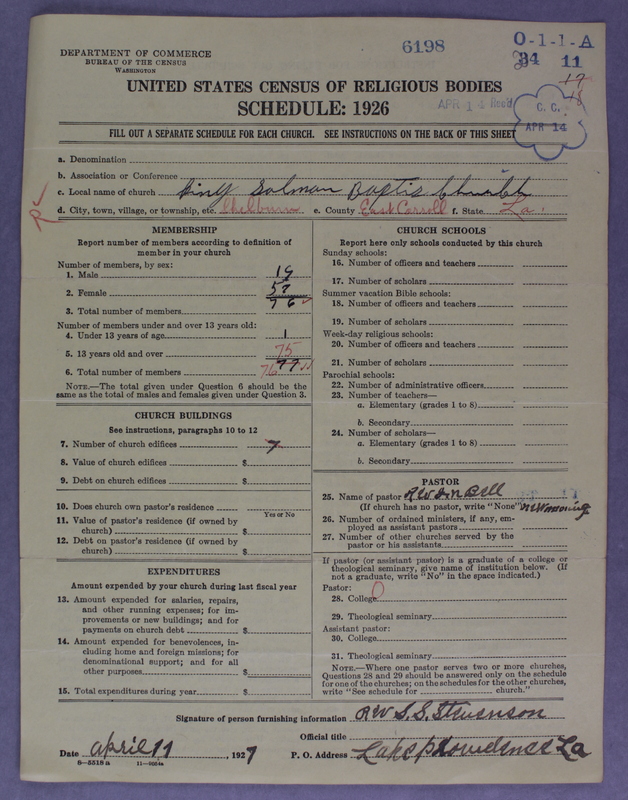 DEPARTMENT OF COMMERCE
BUREAU OF THE CENSUS
WASHINGTON
6198
O-1-1-A
34 11
17
18
APR 14 Rec'd
C. C.
APR 14
UNITED STATES CENSUS OF RELIGIOUS BODIES
SCHEDULE: 1926
FILL OUT A SEPARATE SCHEDULE FOR EACH CHURCH. SEE INSTRUCTIONS ON THE BACK OF THIS SHEET
a. Denomination
b. Association or Conference
c. Local name of church King Solman Baptis Church
d. City, town, village, or township, etc. Shelburn e. County East Carroll f. State La.
R
MEMBERSHIP
Report number of members according to definition of
member in your church
Number of members, by sex:
1. Male 19
2. Female 57
3. Total number of members 76
Number of members under and over 13 years old:
4. Under 13 years of age 1
5. 13 years old and over 75
6. Total number of members 76 77
NOTE.—The total given under Question 6 should be the
same as the total of males and females given under Question 3.
CHURCH BUILDINGS
See instructions, paragraphs 10 to 12
7. Number of church edifices
8. Value of church edifices $
9. Debt on church edifices $
10. Does church own pastor's residence
Yes or No
11. Value of pastor's residence (if owned by
church) $
12. Debt on pastor's residence (if owned by
church) $
EXPENDITURES
Amount expended by your church during last fiscal year
13. Amount expended for salaries, repairs,
and other running expenses; for im-
provements or new buildings; and for
payments on church debt $
14. Amount expended for benevolences, in-
cluding home and foreign missions; for
denominational support; and for all
other purposes $
15. Total expenditures during year $
CHURCH SCHOOLS
Report here only schools conducted by this church
Sunday schools:
16. Number of officers and teachers
17. Number of scholars
Summer vacation Bible schools:
18. Number of officers and teachers
19. Number of scholars
Week-day religious schools:
20. Number of officers and teachers
21. Number of scholars
Parochial schools:
22. Number of administrative officers
23. Number of teachers—
a. Elementary (grades 1 to 8)
b. Secondary
24. Number of scholars—
a. Elementary (grades 1 to 8)
b. Secondary
PASTOR
25. Name of pastor Rev Bell
(If church has no pastor, write "None")
26. Number of ordained ministers, if any, em-
ployed as assistant pastors
27. Number of other churches served by the
pastor or his assistants
If pastor (or assistant pastor) is a graduate of a college or
theological seminary, give name of institution below. (If
not a graduate, write "No" in the space indicated.)
Pastor:
28. College 0
29. Theological seminary
Assistant pastor:
30. College
31. Theological seminary
NOTE.—Where one pastor serves two or more churches,
Questions 28 and 29 should be answered only on the schedule
for one of the churches; on the schedules for the other churches,
write "See schedule for church."
Signature of person furnishing information Rev S. S. Stevenson
Official title
Date april 11, 1927 P. O. Address Lake providence La
8—5518 a 11—9054a